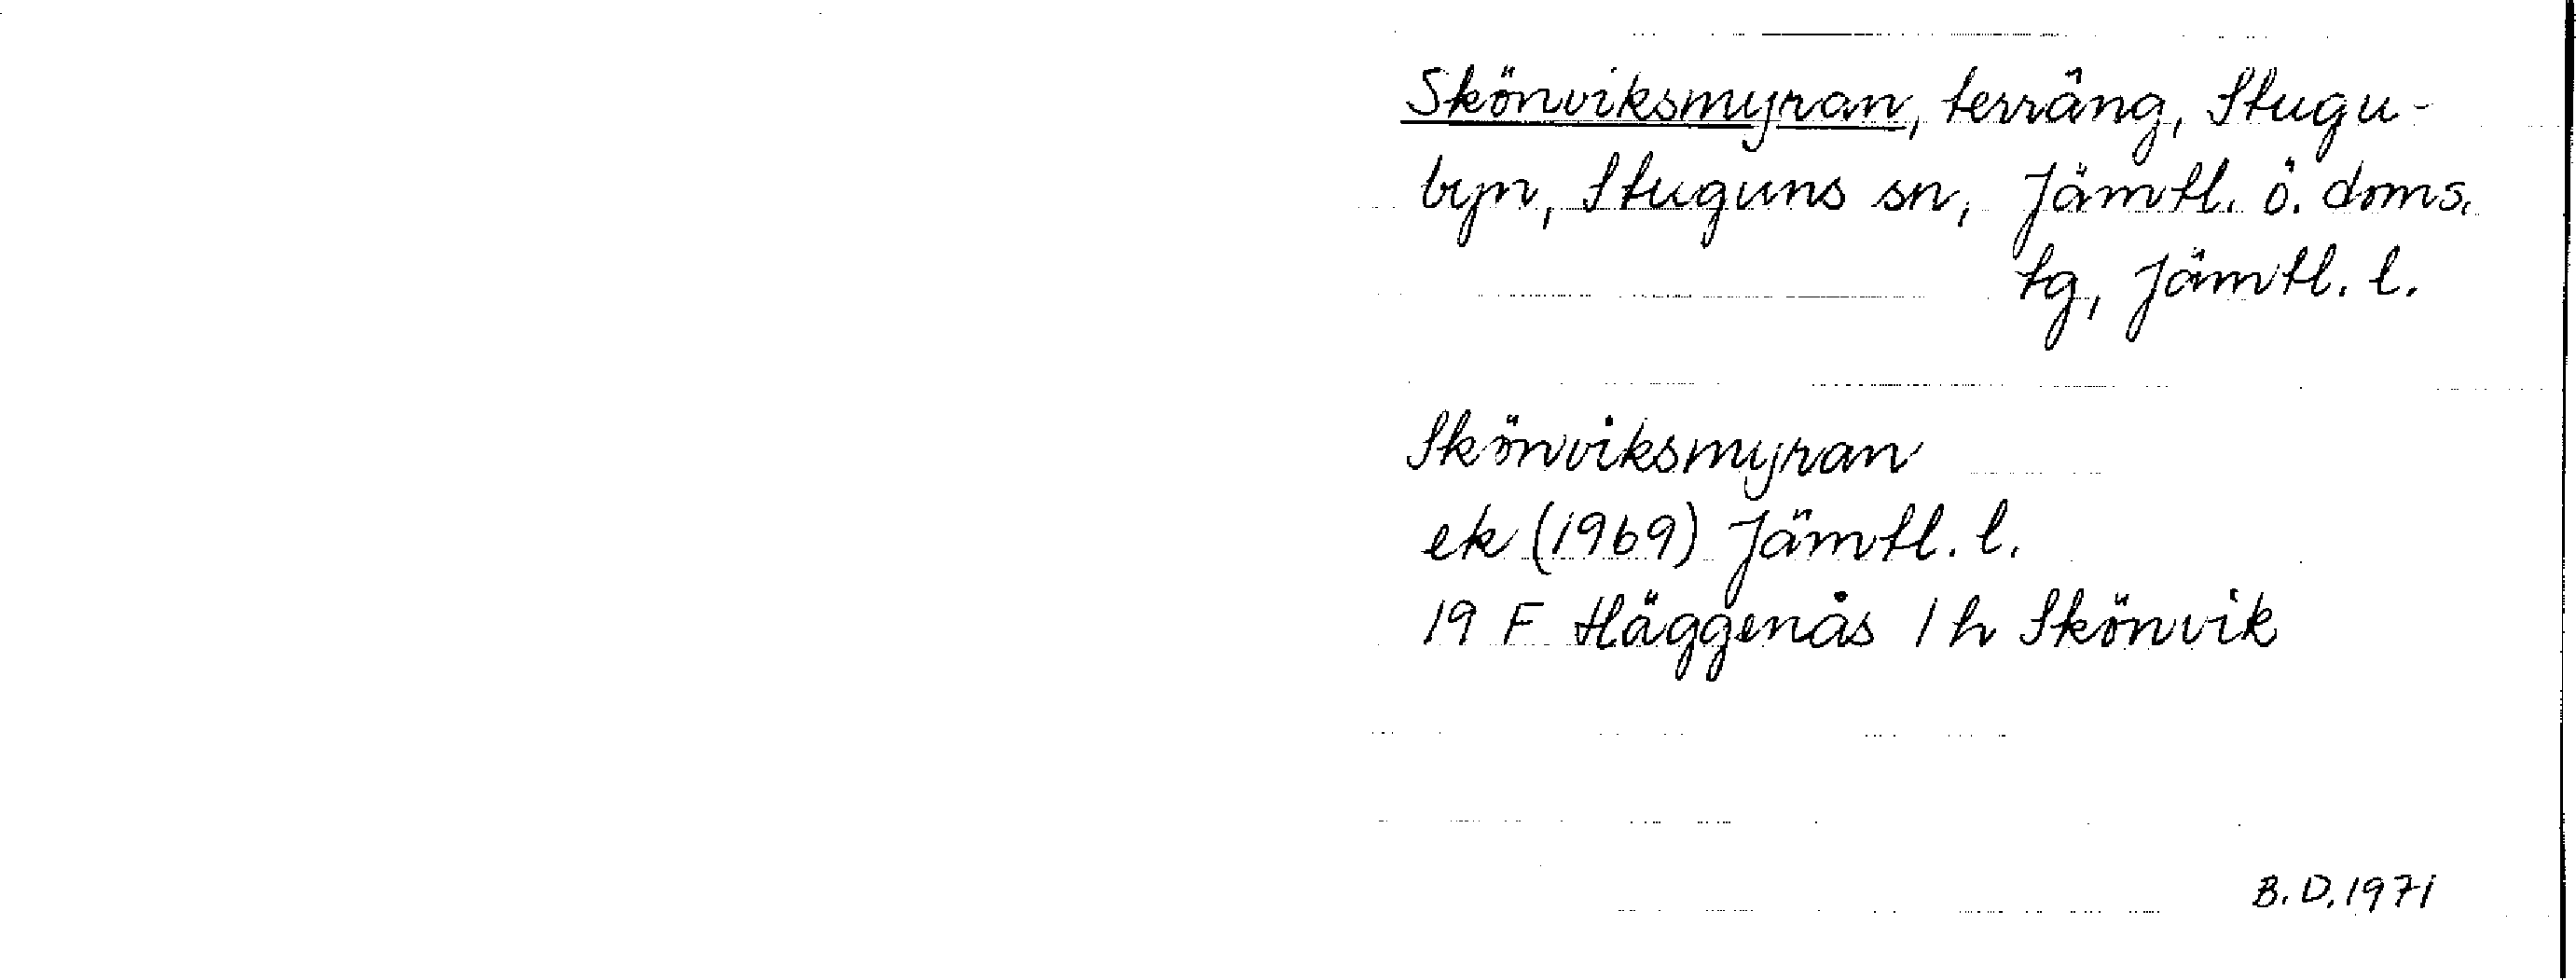 Skönviksmyran, terräng, Stugu-
byn, Stuguns sn, Jämtl. ö. doms.
tg, Jämtl. l.
Skönviksmyran
ek (1969) Jämtl. l.
19 F Häggenås 1 h Skönvik
B.D. 1971